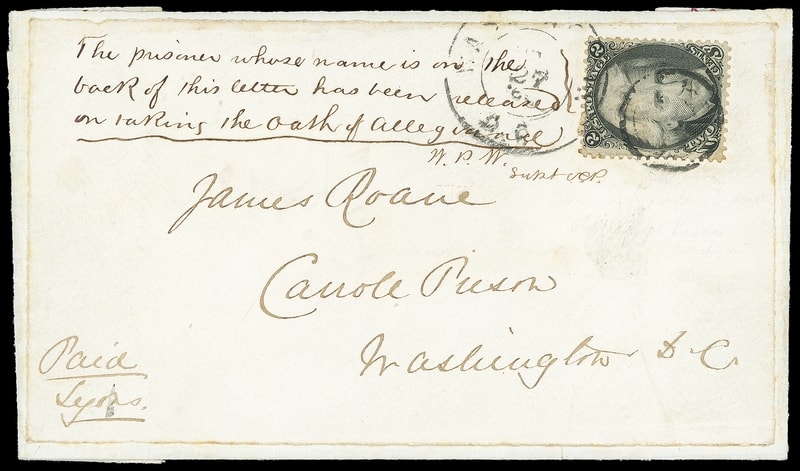 The prisoner whose name is on the
back of this letter has been released
on taking the Oath of Allegiance
W. P. W.
Supt OCP.
James Roane
Carrole Prison
Washington D.C.
Paid
Lyons.
WAS
27
D.C.
U.S. POSTAGE
2 2
TWO CENTS